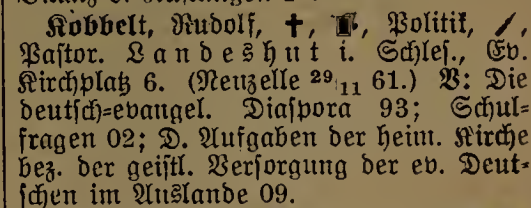 Kobbelt, Rudolf, †, Politik,
Pastor. Landeshut i. Schles., Ev.
Kirchplatz 6. (Neuzelle 29/11 61.) V: Die
deutsch=evangel. Diaspora 93; Schul=
fragen 02; D. Aufgaben der heim. Kirche
bez. der geistl. Versorgung der ev. Deut=
schen im Auslande 09.